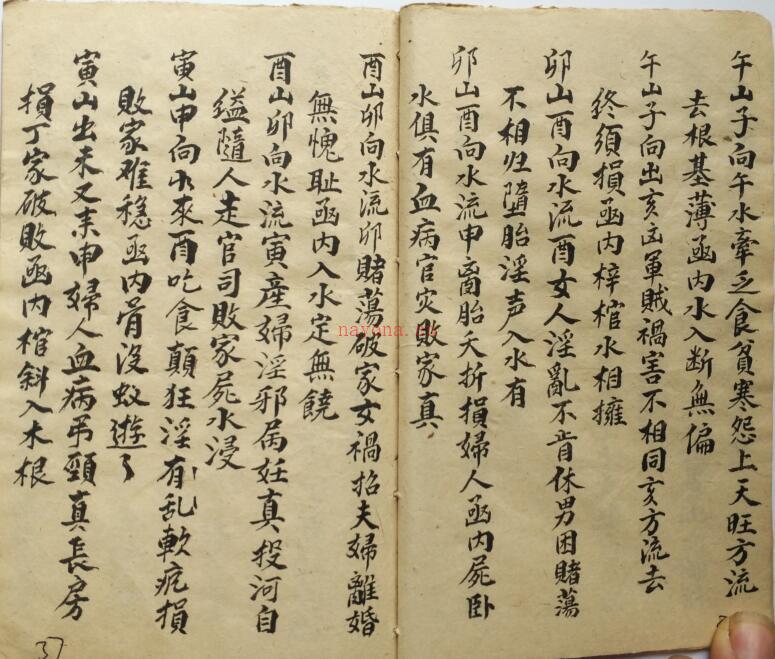 午山子向午水牽乏食貧寒怨上天旺方流
去根基薄函内水入断無偏
午山子向出亥凶軍賊禍害不相同亥方流去
終須損函内梓棺水相擁
卯山酉向水流酉女人淫亂不肯休男困賭蕩
不相归墮胎淫声入水有
卯山酉向水流申离胎夭折損婦人函内屍卧
水俱有血病官灾敗家真
酉山卯向水流卯賭蕩破家女禍招夫婦離婚
無愧耻函内入水定無饒
酉山卯向水流寅産婦淫邪屬妊真投河自
縊隨人走官司敗家屍水浸
寅山申向水來酉吃食顛狂淫有乱軟疣損
敗家难穩函内骨没蚁遊了
寅山出未又耒申婦人血病吊頸真長房
損丁家破敗函内棺斜入木根
37
nayona.cn